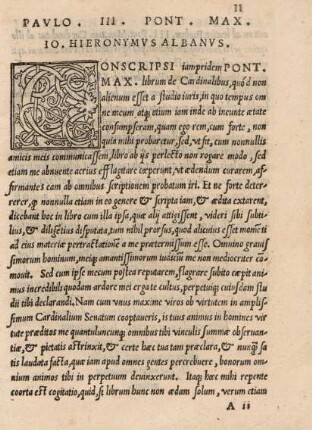 II
PAVLO. III. PONT. MAX.
IO. HIERONYMVS ALBANVS.
CONSCRIPSI iampridem PONT.
MAX. librum de Cardinalibus, quòd non
alienum esset a studio iuris, in quo tempus om
ne meum, atq; etium iam inde ab ineunte ætate
consumpseram, quam ego rem, cum forte, non
quia mihi probaretur, sed, vt fit, cum nonnullis
amicis meis communicassem, libro ab ijs perlecto non rogare modo, sed
etiam me abnuente acrius efflagitare cœperunt, vt ædendum curarem, af-
firmantes eam ab omnibus scriptionem probatum iri. Et ne forte deter-
rerer, quod nonnulla etiam in eo genere & scripta iam, & ædita extarent,
dicebant hoc in libro cum illa ipsa, quæ alij attigissent, videri sibi subti-
lius, & diligentius disputata, tum nihil prorsus, quod alicuius esset momēti
ad eius materiæ pertractationē a me prætermissum esse. Omnino grauis-
simorum hominum, meiq; amantissimorum iudicia me non mediocriter com-
mouit. Sed cum ipse mecum postea reputarem, flagrare subito cœpit animus
incredibili quodam ardore mei erga te cultus, perpetuiq; cuiusdam stu-
dij tibi declarandi. Nam cum vnus maxime viros ob virtutem in amplis-
simum Cardinalium Senatum cooptaueris, is tuus animus in homines vir
tute præditos me quantuluncunq; omnibus tibi vinculis summæ obseruan-
tiæ, & pietatis astrinxit, & certe hæc tua tam præclara, & nunq̃ sa
tis laudata facta, quæ iam apud omnes gentes percrebuere, bonorum om-
nium animos tibi in perpetuum deuinxerunt. Itaq; hæc mihi repente
coorta est cogitatio, quid, si librum hunc non ædam solum, verum etiam
A ii